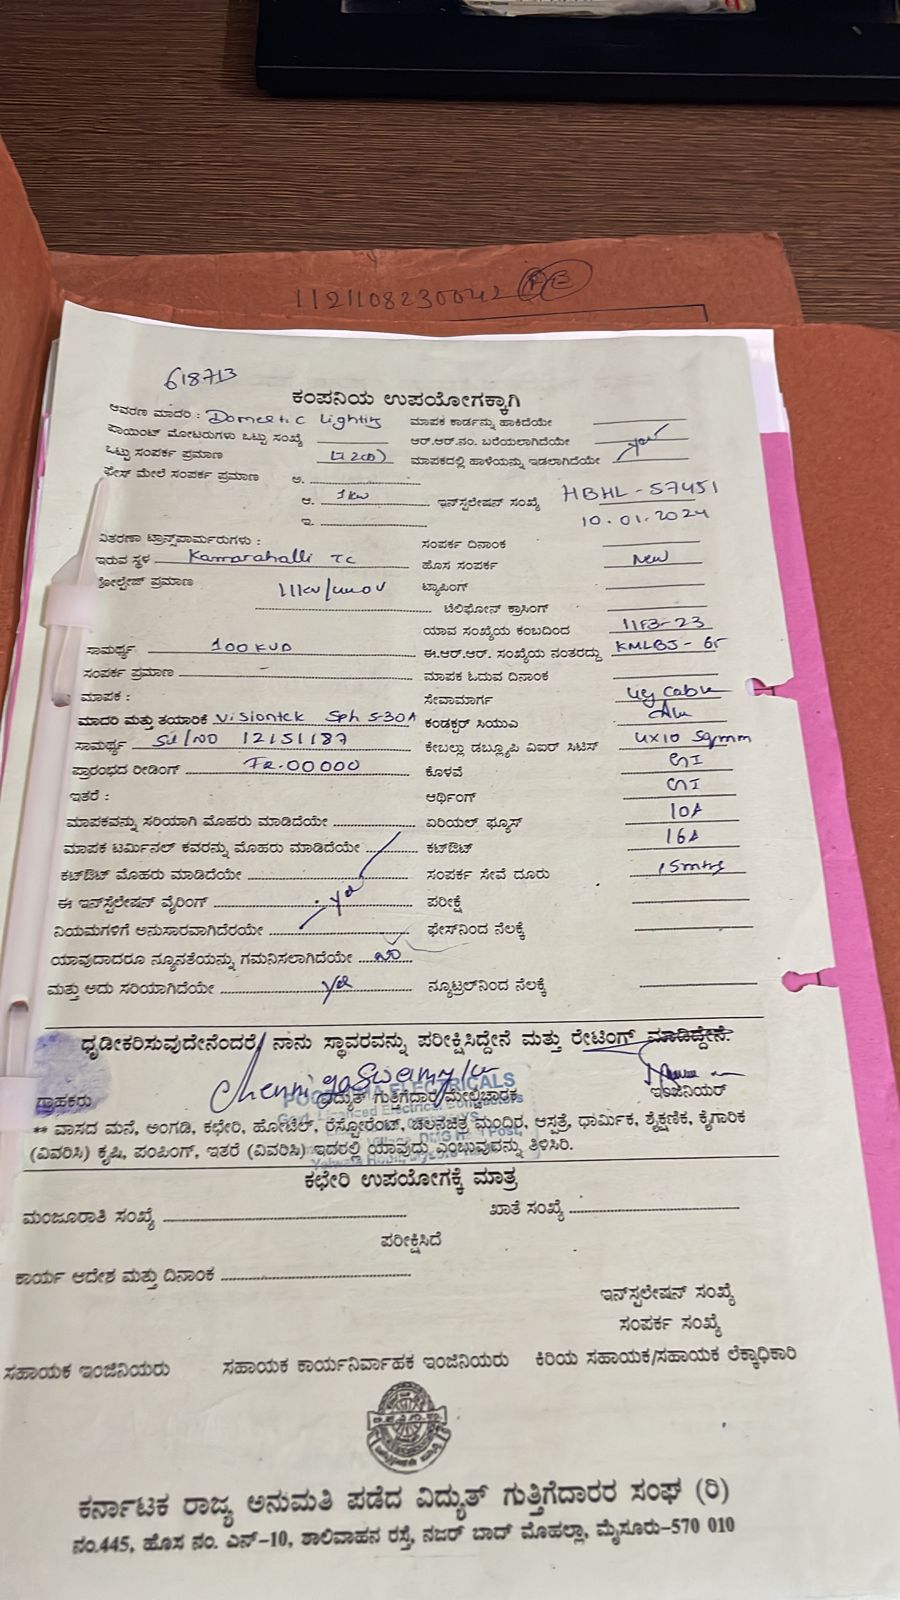 1121108230042 PE
618713
ಕಂಪನಿಯ ಉಪಯೋಗಕ್ಕಾಗಿ
ಆವರಣ ಮಾದರಿ: Domestic Lighting ಮಾಪಕ ಕಾರ್ಡನ್ನು ಹಾಕಿದೆಯೇ
ಪಾಯಿಂಟ್ ಮೋಟರುಗಳು ಒಟ್ಟು ಸಂಖ್ಯೆ ಆರ್.ಆರ್.ನಂ. ಬರೆಯಲಾಗಿದೆಯೇ yes
ಒಟ್ಟು ಸಂಪರ್ಕ ಪ್ರಮಾಣ ಮಾಪಕದಲ್ಲಿ ಹಾಳೆಯನ್ನು ಇಡಲಾಗಿದೆಯೇ
ಫೇಸ್ ಮೇಲೆ ಸಂಪರ್ಕ ಪ್ರಮಾಣ ಅ.
ಆ. 1kw ಇನ್‌ಸ್ಟಲೇಷನ್ ಸಂಖ್ಯೆ HBHL-57451
ಇ. 10.01.2024
ವಿತರಣಾ ಟ್ರಾನ್ಸ್‌ಪಾರ್ಮರುಗಳು: ಸಂಪರ್ಕ ದಿನಾಂಕ
ಇರುವ ಸ್ಥಳ Kamarahalli TC ಹೊಸ ಸಂಪರ್ಕ New
ವೋಲ್ಟೇಜ್ ಪ್ರಮಾಣ ಟ್ಯಾಪಿಂಗ್
ಟೆಲಿಫೋನ್ ಕ್ರಾಸಿಂಗ್
ಯಾವ ಸಂಖ್ಯೆಯ ಕಂಬದಿಂದ 11F3-23
ಸಾಮರ್ಥ್ಯ 100 KVA ಈ.ಆರ್.ಆರ್. ಸಂಖ್ಯೆಯ ನಂತರದ್ದು KMLBJ-65
ಸಂಪರ್ಕ ಪ್ರಮಾಣ ಮಾಪಕ ಓದುವ ದಿನಾಂಕ
ಮಾಪಕ : ಸೇವಾಮಾರ್ಗ ug cable
ಮಾದರಿ ಮತ್ತು ತಯಾರಿಕೆ Visiontek Sph 5-30A ಕಂಡಕ್ಟರ್ ಸಿಯುಎ Alu
ಸಾಮರ್ಥ್ಯ Sl/NO 12151187 ಕೇಬಲ್ಲು ಡಬ್ಲ್ಯೂಪಿ ವಿಐರ್ ಸಿಟಿಸ್ 4x10 Sqmm
ಪ್ರಾರಂಭದ ರೀಡಿಂಗ್ FR.00000 ಕೊಳವೆ GI
ಇತರೆ : ಆರ್ಥಿಂಗ್ GI
ಮಾಪಕವನ್ನು ಸರಿಯಾಗಿ ಮೊಹರು ಮಾಡಿದೆಯೇ ಏರಿಯಲ್ ಫ್ಯೂಸ್ 10A
ಮಾಪಕ ಟರ್ಮಿನಲ್ ಕವರನ್ನು ಮೊಹರು ಮಾಡಿದೆಯೇ ಕಟ್‌ಔಟ್ 16A
ಕಟ್‌ಔಟ್ ಮೊಹರು ಮಾಡಿದೆಯೇ ಸಂಪರ್ಕ ಸೇವೆ ದೂರು 15mtrs
ಈ ಇನ್‌ಸ್ಟಲೇಷನ್ ವೈರಿಂಗ್ yes ಪರೀಕ್ಷೆ
ನಿಯಮಗಳಿಗೆ ಅನುಸಾರವಾಗಿದೆರಯೇ ಫೇಸ್‌ನಿಂದ ನೆಲಕ್ಕೆ
ಯಾವುದಾದರೂ ನ್ಯೂನತೆಯನ್ನು ಗಮನಿಸಲಾಗಿದೆಯೇ no
ಮತ್ತು ಅದು ಸರಿಯಾಗಿದೆಯೇ yes ನ್ಯೂಟ್ರಲ್‌ನಿಂದ ನೆಲಕ್ಕೆ
ಧೃಡೀಕರಿಸುವುದೇನೆಂದರೆ, ನಾನು ಸ್ಥಾವರವನ್ನು ಪರೀಕ್ಷಿಸಿದ್ದೇನೆ ಮತ್ತು ರೇಟಿಂಗ್ ಮಾಡಿದ್ದೇನೆ.
Chennigaswamy
ಗ್ರಾಹಕರು ವಿದ್ಯುತ್ ಗುತ್ತಿಗೆದಾರ/ಮೇಲ್ವಿಚಾರಕ ಇಂಜಿನಿಯರ್
ELECTRICALS
Licenced Electrical
** ವಾಸದ ಮನೆ, ಅಂಗಡಿ, ಕಛೇರಿ, ಹೋಟೆಲ್, ರೆಸ್ಟೋರೆಂಟ್, ಚಲನಚಿತ್ರ ಮಂದಿರ, ಆಸ್ಪತ್ರೆ, ಧಾರ್ಮಿಕ, ಶೈಕ್ಷಣಿಕ, ಕೈಗಾರಿಕ
(ವಿವರಿಸಿ) ಕೃಷಿ, ಪಂಪಿಂಗ್, ಇತರೆ (ವಿವರಿಸಿ) ಇದರಲ್ಲಿ ಯಾವುದು ಎಂಬುವುದನ್ನು ತಿಳಿಸಿರಿ.
ಕಛೇರಿ ಉಪಯೋಗಕ್ಕೆ ಮಾತ್ರ
ಮಂಜೂರಾತಿ ಸಂಖ್ಯೆ ಖಾತೆ ಸಂಖ್ಯೆ
ಪರೀಕ್ಷಿಸಿದೆ
ಕಾರ್ಯ ಆದೇಶ ಮತ್ತು ದಿನಾಂಕ
ಇನ್‌ಸ್ಪಲೇಷನ್ ಸಂಖ್ಯೆ
ಸಂಪರ್ಕ ಸಂಖ್ಯೆ
ಸಹಾಯಕ ಇಂಜಿನಿಯರು ಸಹಾಯಕ ಕಾರ್ಯನಿರ್ವಾಹಕ ಇಂಜಿನಿಯರು ಕಿರಿಯ ಸಹಾಯಕ/ಸಹಾಯಕ ಲೆಕ್ಕಾಧಿಕಾರಿ
ಕರ್ನಾಟಕ ರಾಜ್ಯ ಅನುಮತಿ ಪಡೆದ ವಿದ್ಯುತ್ ಗುತ್ತಿಗೆದಾರರ ಸಂಘ (ರಿ)
ನಂ.445, ಹೊಸ ನಂ. ಎನ್-10, ಶಾಲಿವಾಹನ ರಸ್ತೆ, ನಜರ್ ಬಾದ್ ಮೊಹಲ್ಲಾ, ಮೈಸೂರು-570 010